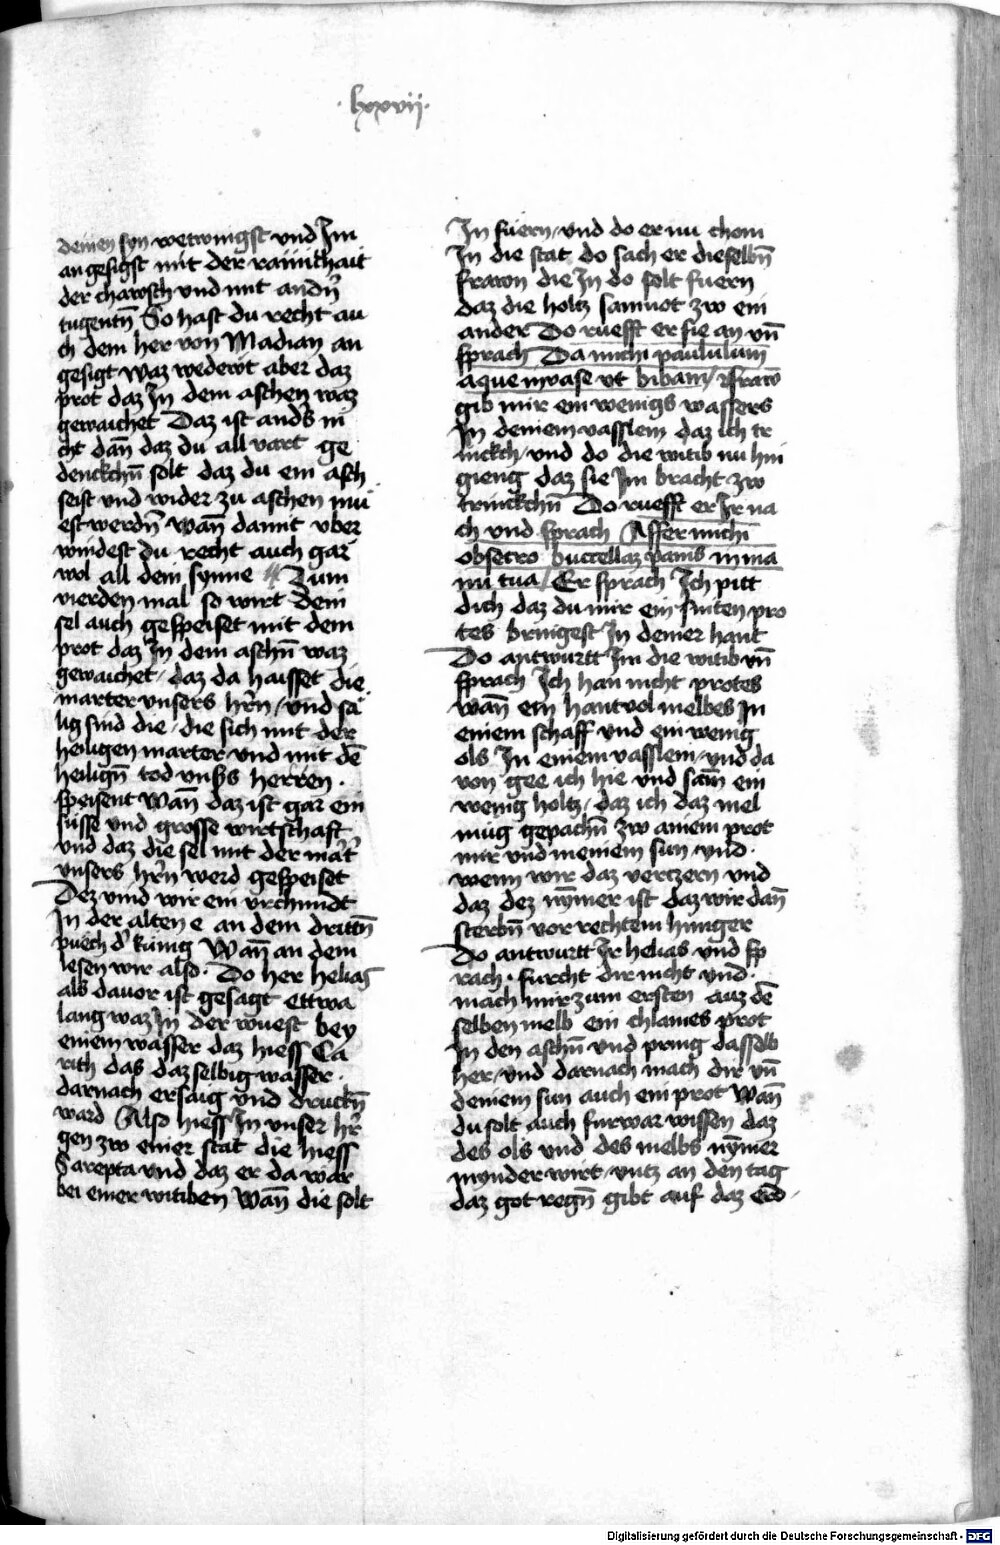 · lxxvij ·
deinen syn wetwingst vnd Im
an gesigst mit der rainikhait
der chawsch vnd mit andn̄
tugentn̄ So hast du recht au
ch dem her von Madian an
gesigt Waz wedewt aber daz
prot daz In dem aschen waz
gewaichet Daz ist anders ni
cht dan̄ daz du all vart ge
denckchn̄ solt daz du ein asch
seist vnd wider zu aschen mu
est werdn̄ Wan̄ damit vber
windest du recht auch gar
wol all dein synne Zum
vierden mal so wirt dein
sel auch gespeiset mit dem
prot daz In dem aschn̄ waz
gewaichet / daz da haisset die
marter vnsers hr̄n / vnd sä
lig sind die / die sich mit der
heiligen marter vnd mit dē
heilign̄ tod vnsers herren ·
speisent Wan̄ daz ist gar ein
süsse vnd grosse wirtschaft
vnd daz die sel mit der mart̄
vnsers hr̄n werd gespeiset
Dez vind wir ein vrchundt
In der alten e an dem dritn̄
puech d' künig Wan̄ an dem
lesen wir also · Do her helias
als dauor ist gesagt ettwa
lang waz In der wuest bey
einem wasser daz hiess Ca
rith das daz selbig wasser ·
darnach ersaig vnd druckn̄
ward Also hiess In vnser hr̄
gen zw einer stat die hiess
Sarepta vnd daz er da war
bei einer witiben Wan̄ die solt
In füern / vnd do er nu chom
In die stat do sach er dieselbn̄
frawn die In do solt fuern
daz die holtz samnot zw ein
ander Do ruefft er sie an vn̄
sprach Da michi paululum
aque in vase vt bibam / fraw
gib mir ein wenigs wassers
In deinem vasslein daz ich tr
inckch / vnd do die witib nu hin
gieng daz sie Im bracht zw
trinckchn̄ Do ruefft er Ir na
ch vnd sprach Affer michi
obsecro buccellaz panis in ma
nu tua / Er sprach Ich pitt
dich daz du mir ein sniten pro
tes bringest In deiner hant
Do antwurtt Im die witib vn̄
sprach Ich han nicht protes
wan̄ ein hantvol melbes In
einem schaff vnd ein wenig
ols In einem vasslein / vnd da
von gee ich hie vnd sam̄ ein
wenig holtz / daz ich daz mel
mug gepachn̄ zw ainem prot
mir vnd meinem sun vnd ·
wenn wir daz verczern vnd
daz dez nȳmer ist daz wir dan̄
sterbn̄ vor rechtem hunger
Do antwurtt Ir helias vnd sp
rach · furcht dir nicht vnd ·
mach mir zum ersten auz dē
selben melb ein chlaines prot
In den aschn̄ vnd pring dasselb
her / vnd darnach mach dir vn̄
deinem sun auch ein prot Wan̄
du solt auch furwar wissen daz
des ols vnd des melbs nȳmer
mynder wirt / vntz an den tag
daz got regn̄ gibt auf daz erd
Digitalisierung gefördert durch die Deutsche Forschungsgemeinschaft - DFG